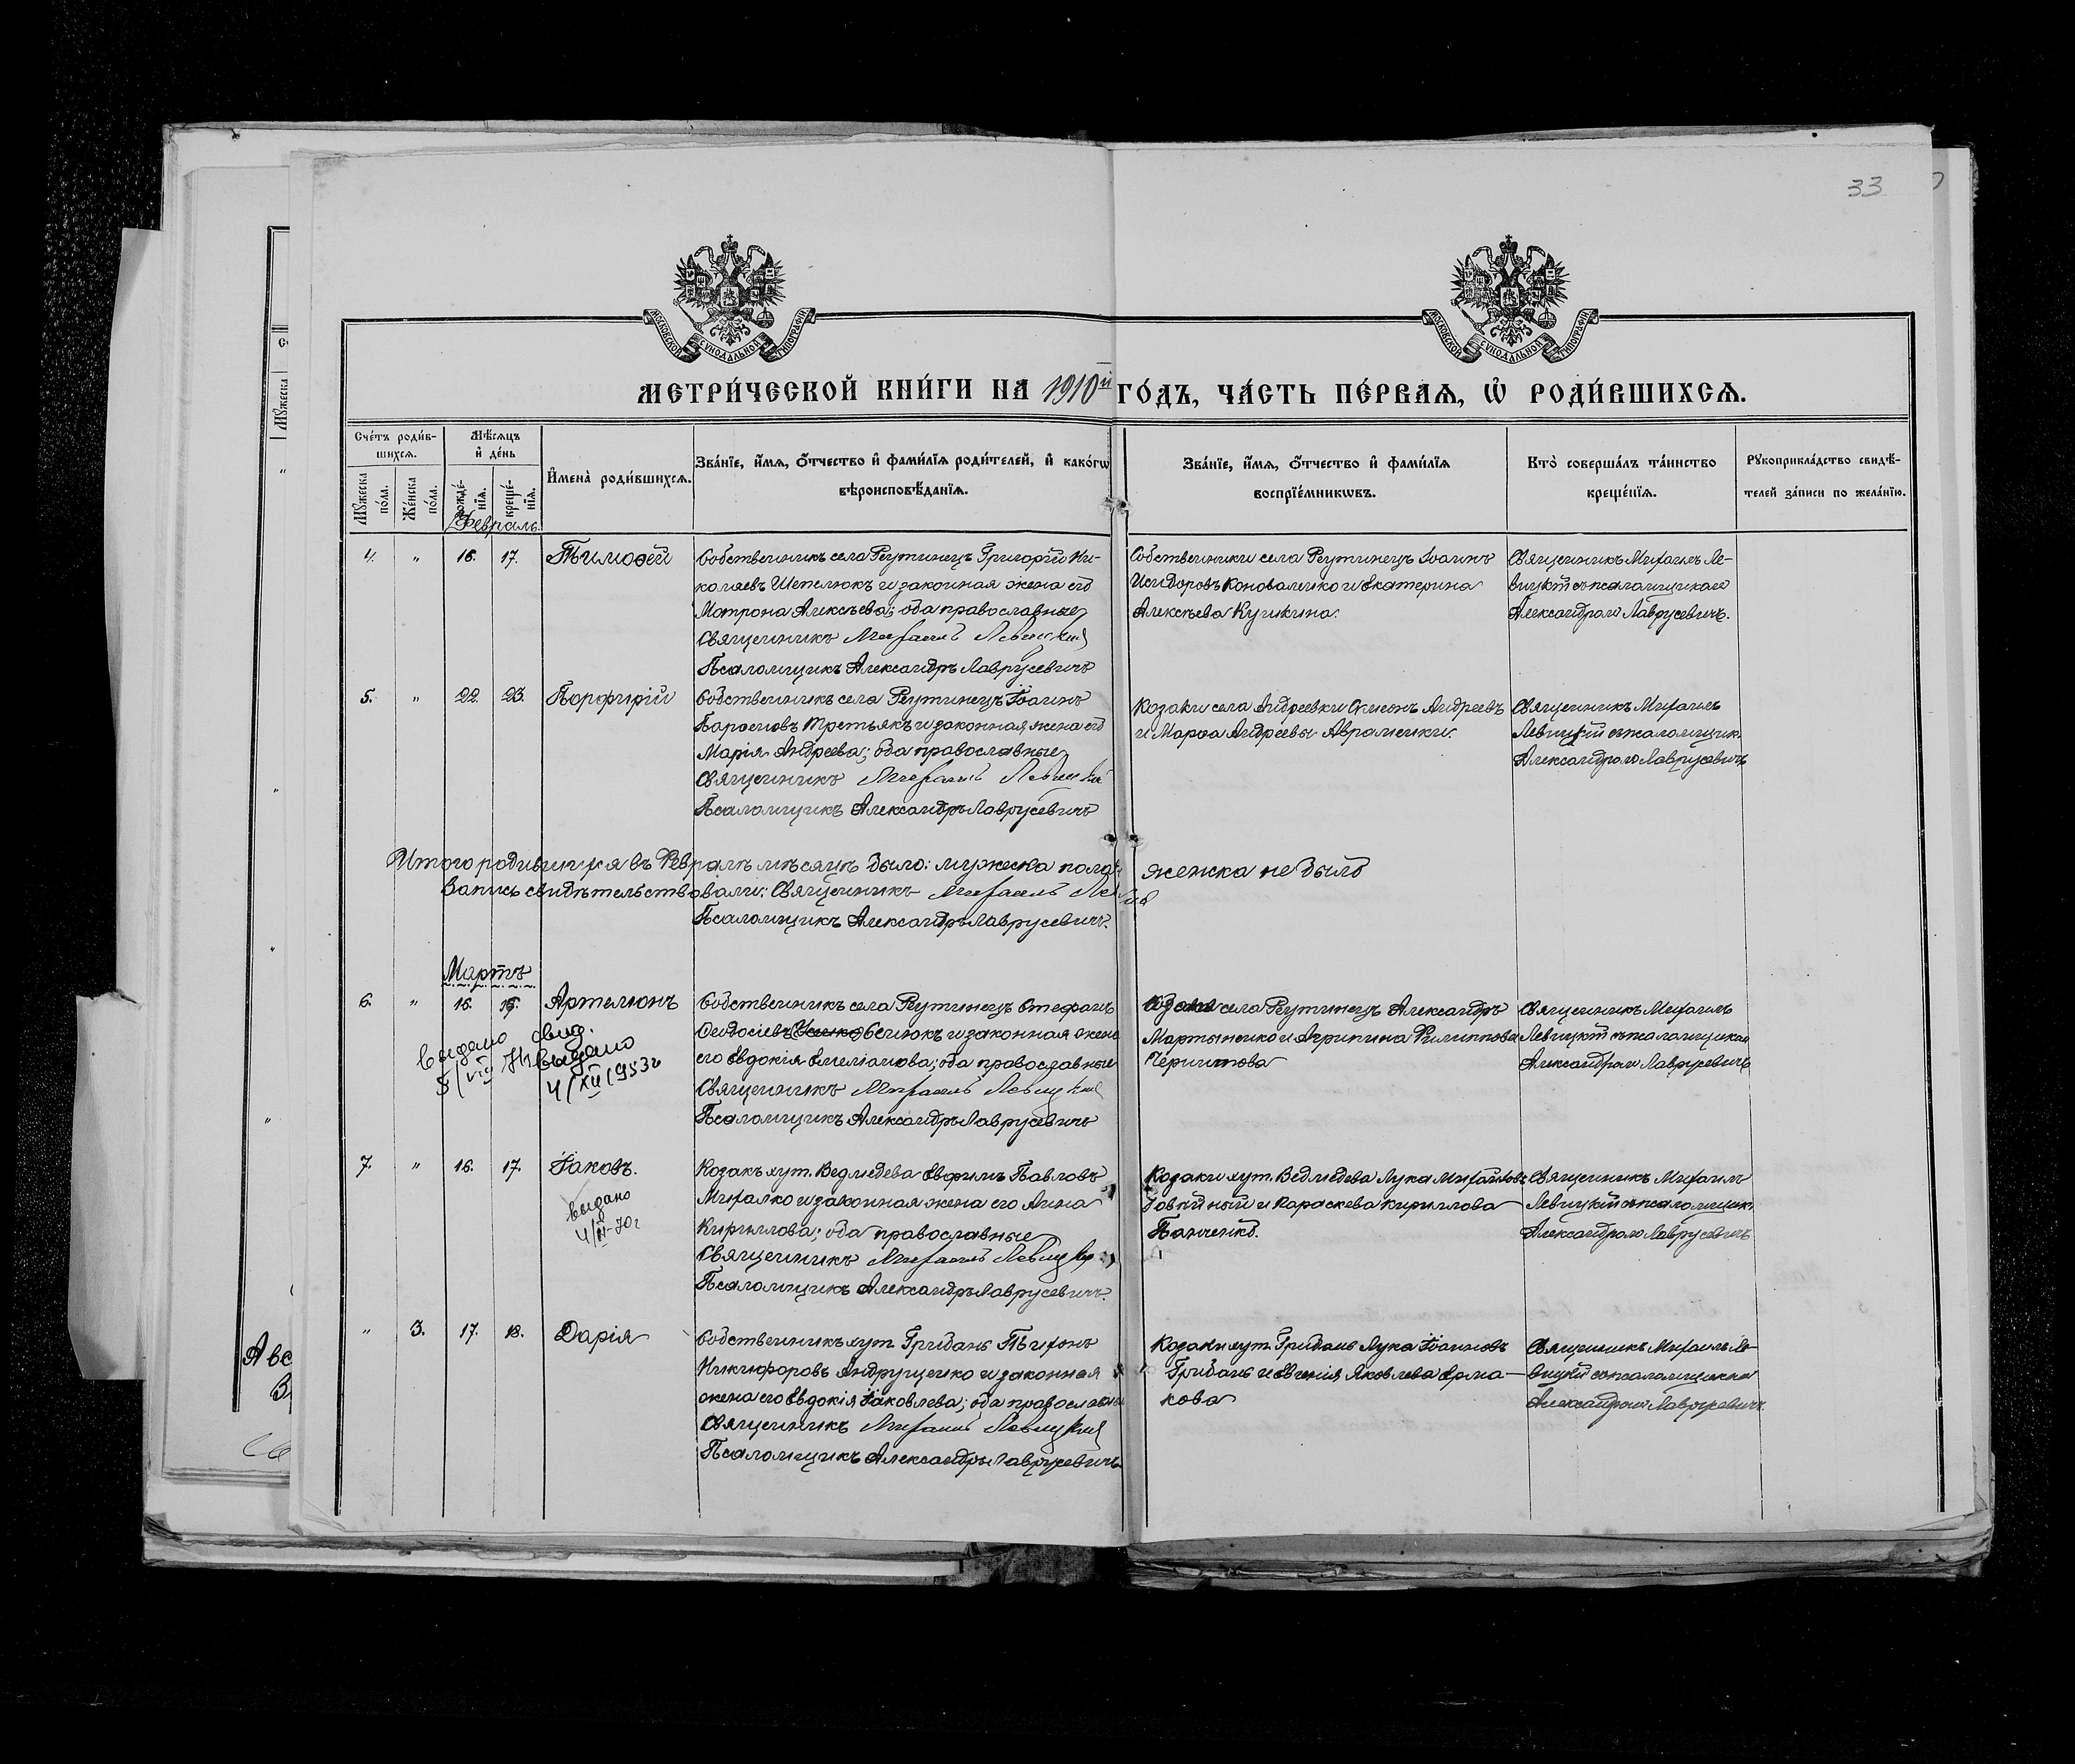 33
МОСКОВСКОЙ СѴНОДАЛЬНОЙ ТИПОГРАФІИ
МОСКОВСКОЙ СѴНОДАЛЬНОЙ ТИПОГРАФІИ
МЕТРИ́ЧЕСКОЙ КНИ́ГИ НА 1910й ГО́ДЪ, ЧА́СТЬ ПЕ́РВАѦ, Ѡ҆ РОДИ́ВШИХСѦ.
Сче́тъ роди́в-
шихсѧ.
Мѣ́сѧцъ
и҆ де́нь
Мꙋ́жеска
по́ла.
Же́нска
по́ла.
рожде́-
нїѧ.
креще́-
нїѧ.
И҆мена̀ роди́вшихсѧ.
Зва́нїе, и҆́мѧ, ѻ҆́тчество и҆ фами́лїѧ роди́телей, и҆ како́гѡ
вѣроисповѣ́данїѧ.
Зва́нїе, и҆́мѧ, ѻ҆́тчество и҆ фами́лїѧ
воспрїе́мникѡвъ.
Кто̀ соверша́лъ та́инство
креще́нїѧ.
Рꙋкоприкла́дство свидѣ́-
телей за́писи по жела́нїю.
Февраль.
4. " 16. 17. Тимоѳей
Собственникъ села Реутинецъ Григорій Ни-
колаевъ Шепелюкъ и законная жена его
Матрона Алексѣева; оба православные
Священникъ Михаилъ Левицкій
Псаломщикъ Александръ Лаврусевичъ
Собственники села Реутинецъ Іоаннъ
Исидоровъ Коноваленко и Екатерина
Алексѣева Кушкина.
Священникъ Михаилъ Ле-
вицкій съ псаломщикомъ
Александромъ Лаврусевичъ.
5. " 22. 23. Порфирій
Собственникъ села Реутинецъ Іоаннъ
Третьякъ и законная жена его
Марія Андреева; оба православные
Священникъ Михаилъ Левицкій
Псаломщикъ Александръ Лаврусевичъ
Козаки села Андреевки Симеонъ Андреевъ
и Марѳа Андреевы Авраменки.
Священникъ Михаилъ
Левицкій съ псаломщик.
Александромъ Лаврусевичъ
Итого родившихся въ Февралѣ мѣсяцѣ было: мужеска пола женска не было
Запись свидѣтельствовали: Священникъ Михаилъ
Псаломщикъ Александръ Лаврусевичъ.
Мартъ
6. " 16. Артемонъ
Выдано свид.
Выдано
4/XII 1953г
Собственникъ села Реутинецъ Стефанъ
Ѳеодосіевъ и законная жена
его Евдокія Емеліанова; оба православные
Священникъ Михаилъ Левицкій
Псаломщикъ Александръ Лаврусевичъ
села Реутинецъ Александръ
Мартыненко и Агрипина Филиппова
Священникъ Михаилъ
Левицкій съ псаломщикомъ
Александромъ Лаврусевичъ
7. " 16. 17. Іаковъ.
выдано
Козакъ хут. Ведмедева Евфимъ Павловъ
Михалко и законная жена его Анна
Кириллова; оба православные
Священникъ Михаилъ Левицкій
Псаломщикъ Александръ Лаврусевичъ.
Козаки хут. Ведмедева Лука Михайловъ
и Параскева Кириллова
Панченко.
Священникъ Михаилъ
Левицкій съ псаломщик.
Александромъ Лаврусевичъ
" 3. 17. 18. Дарія
Собственникъ хут. Грибань Тихонъ
Никифоровъ Андрущенко и законная
жена его Евдокія Іаковлева; оба православны
Священникъ Михаилъ Левицкій
Псаломщикъ Александръ Лаврусевичъ
Козаки хут. Грибань Лука Іоанновъ
Грибань и Евгенія Яковлева Ерма-
кова
Священникъ Михаилъ Ле-
вицкій съ псаломщикомъ
Александромъ Лаврусевичъ.